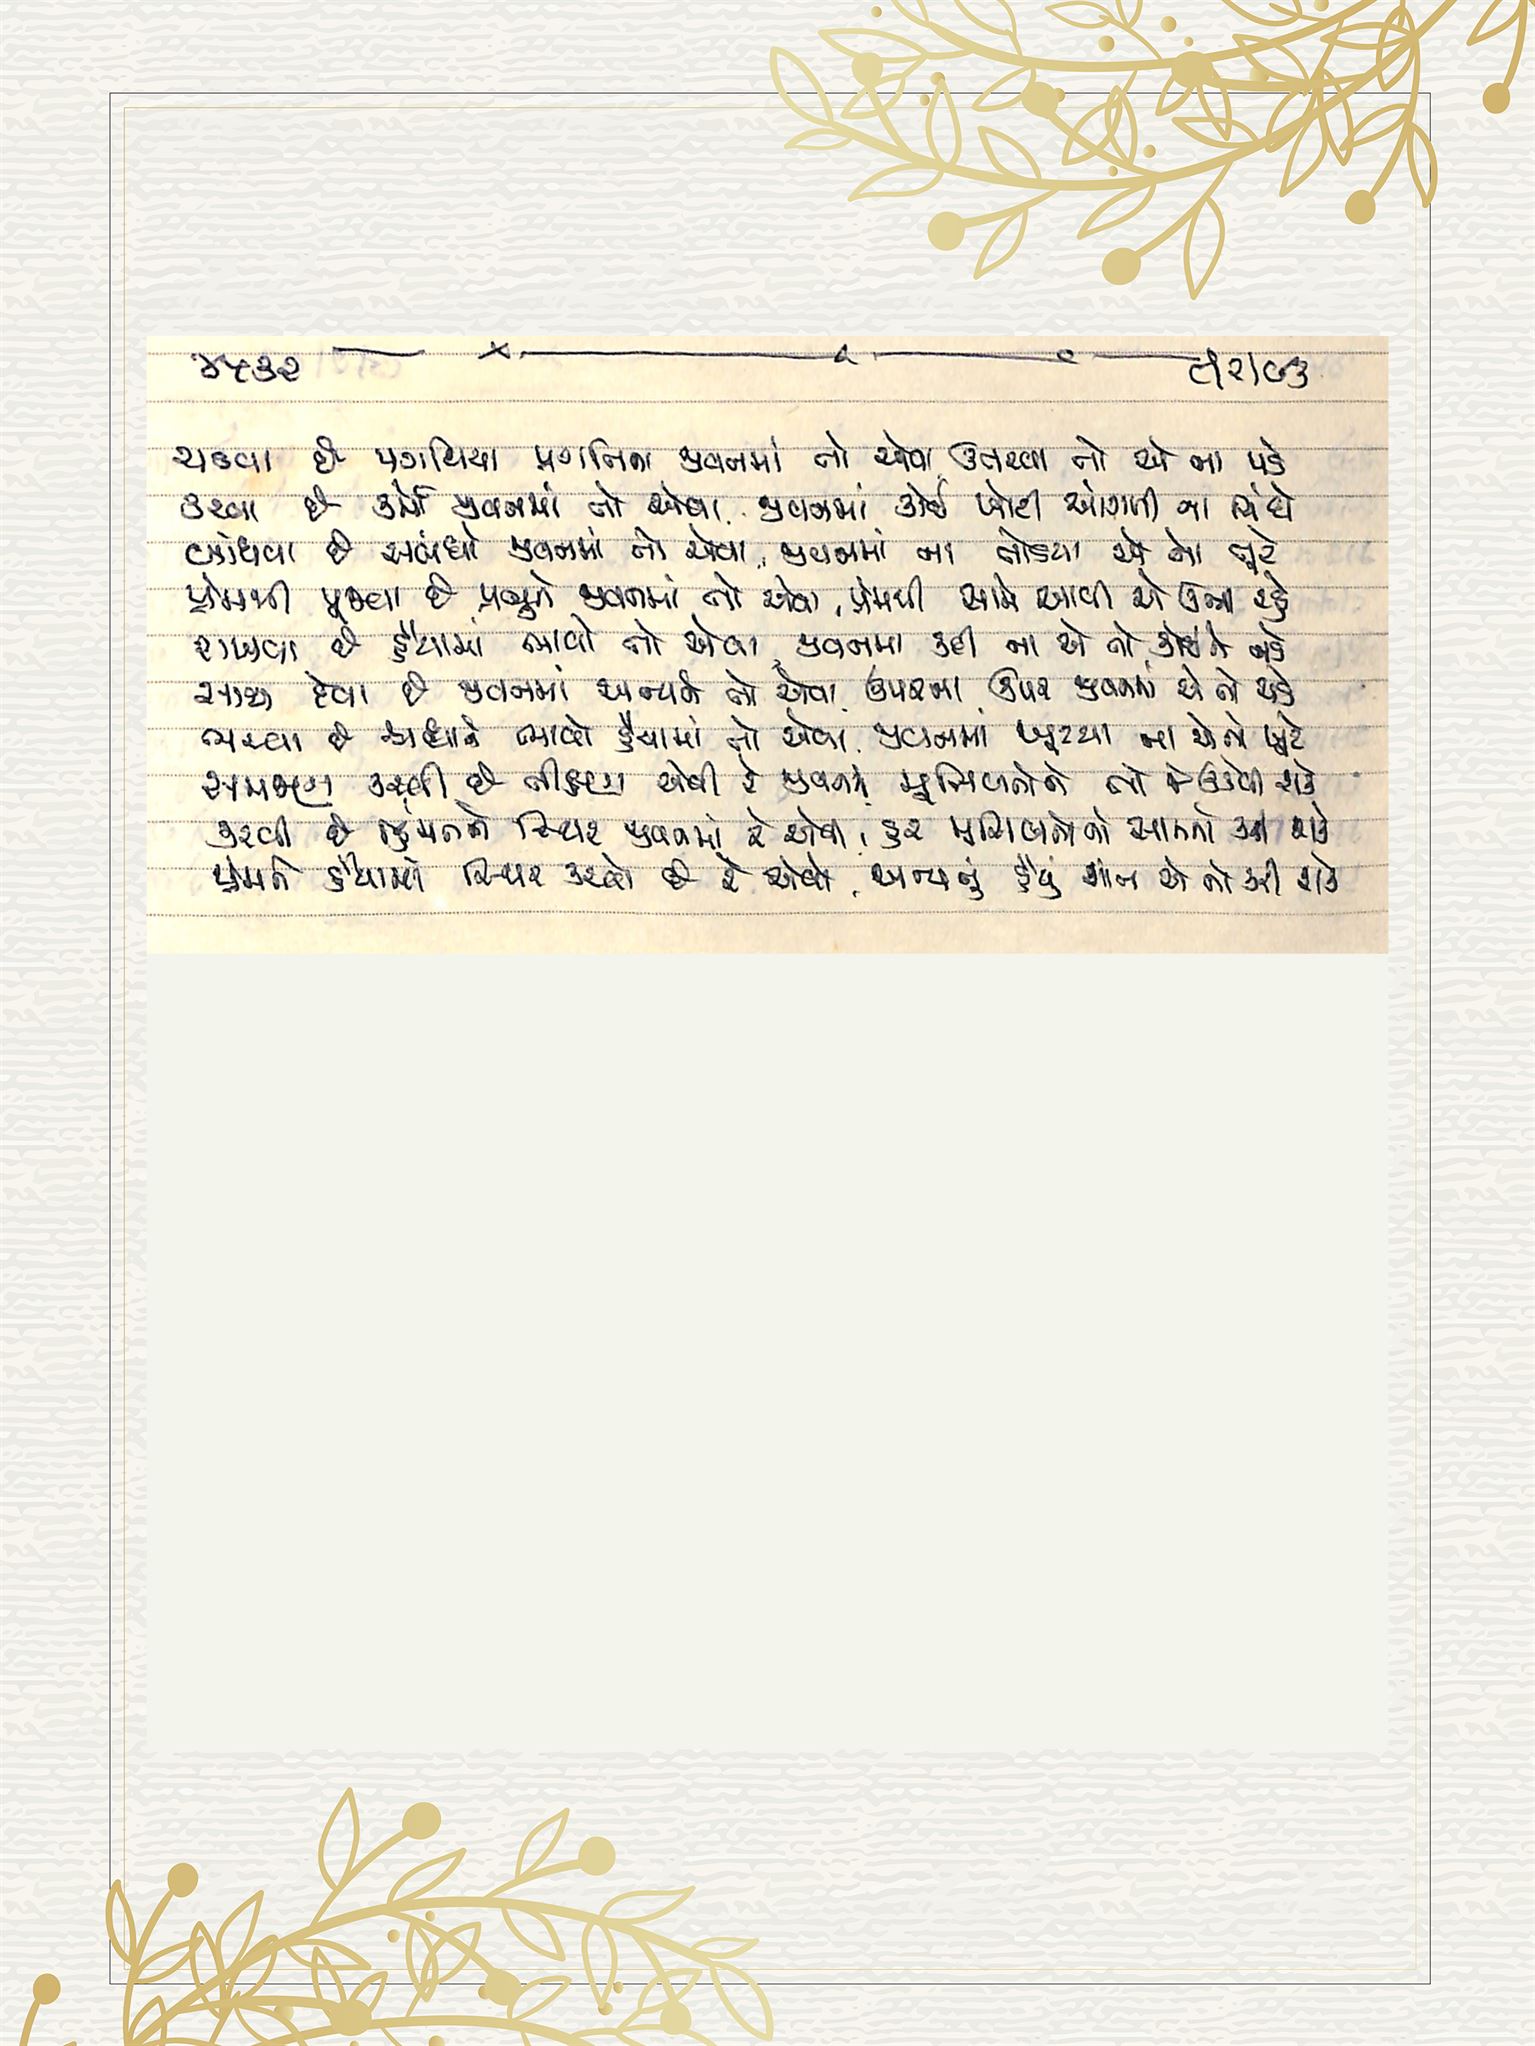 ૪૫૩૨
ચડવા છે પગથિયા પ્રગતિના જીવનમાં તો એવા ઉતરવા તો એ ના પડે
કરવા છે કર્મો જીવનમાં તો એવા, જીવનમાં કોઈ ખોટી આંગળી ના ચિંધે
બાંધવા છે સબંધો જીવનમાં તો એવા, જીવનમાં ના તોડયા એ તો તૂટે
પ્રેમથી પૂજવા છે પ્રભુને જીવનમાં તો એવા, પ્રેમથી સામે આવી એ ઉભા રહે
રાખવા છે હૈયામાં ભાવો તો એવા, જીવનમા કદી ના એ તો કોઈને નડે
સાથ દેવા છે જીવનમાં અન્યને તો એવા, ઉપરના ઉપર જીવનમાં એ તો ચડે
ભરવા છે શ્રધ્ધાને ભાવો હૈયામાં તો એવા, જીવનમાં ખૂટયા ના એ તો ખૂટે
સમજણ કરવી છે તીક્ષ્ણ એવી રે જીવનમાં મુસિબતોને તો ઉકેલી શકે
કરવી છે હિંમતને સ્થિર જીવનમાં રે એવી, હર મુસિબતોનો સામનો કરી શકે
પ્રેમને હૈયામાં સ્થિર કરવો છે રે એવો, અન્યનું હૈયું શાંત એ તો કરી શકે